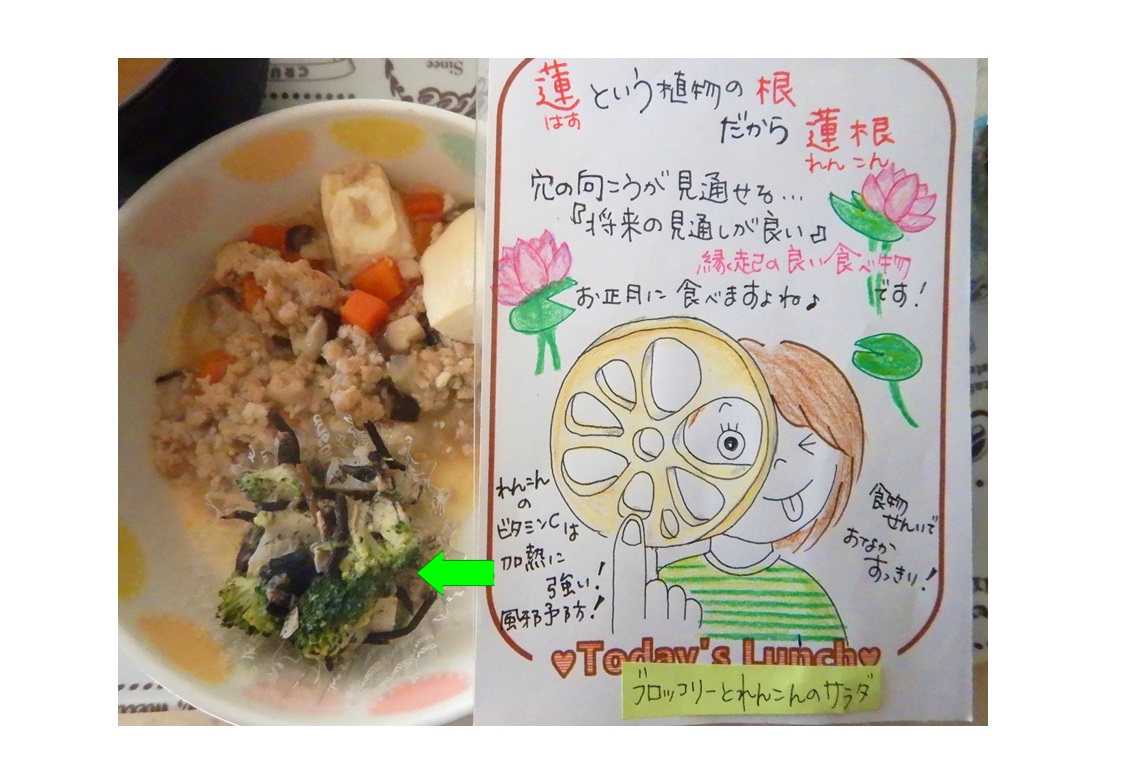 Since
蓮という植物の根
はす
だから蓮根
れんこん
穴の向こうが見通せる...
『将来の見通しが良い』
縁起の良い食べ物
です!
お正月に食べますよね♪
れんこん
の
ビタミンCは
加熱に
強い!
風邪予防!
食物
せんいで
おなか
すっきり!
♥Today's Lunch♥
ブロッコリーとれんこんのサラダ